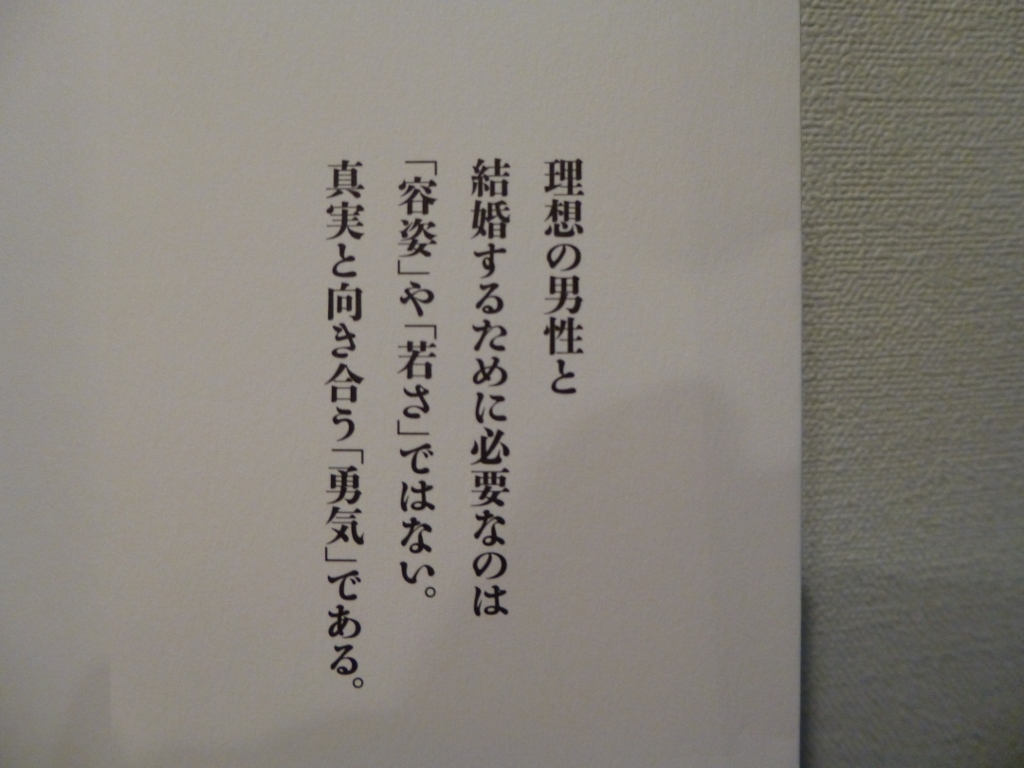 理想の男性と
結婚するために必要なのは
「容姿」や「若さ」ではない。
真実と向き合う「勇気」である。